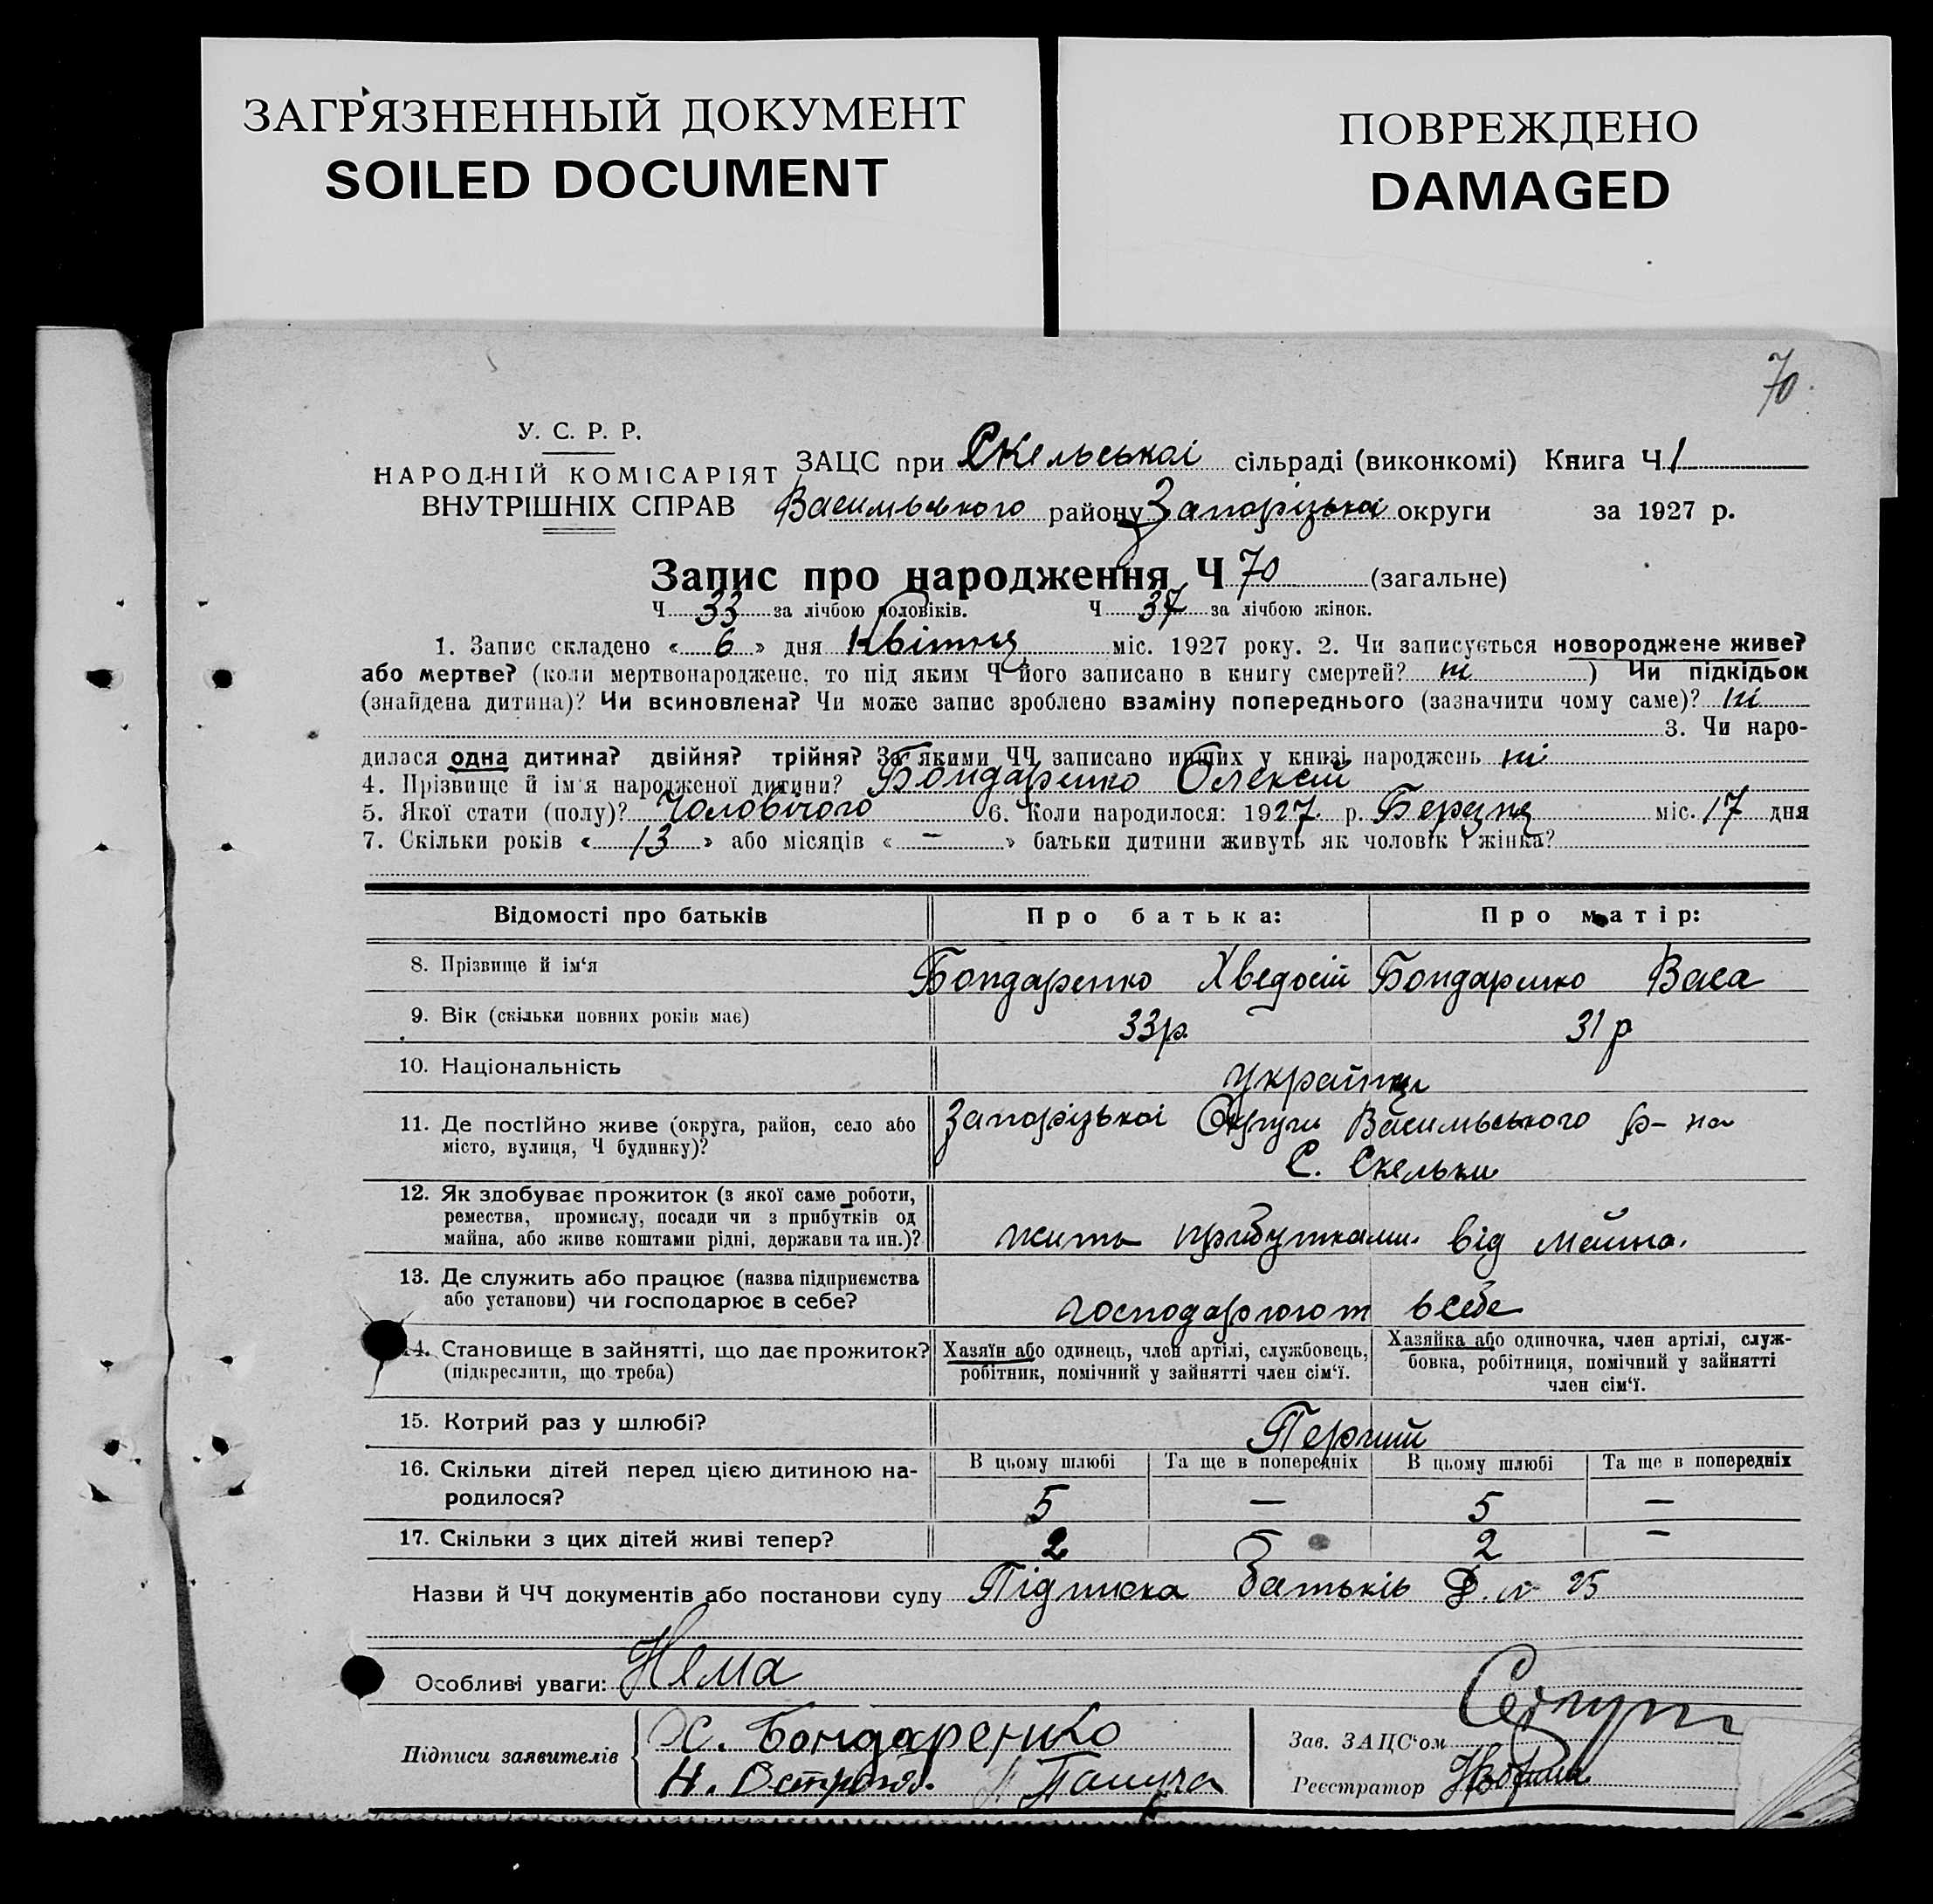 ЗАГРЯЗНЕННЫЙ ДОКУМЕНТ
SOILED DOCUMENT
ПОВРЕЖДЕНО
DAMAGED
70
У. С. Р. Р.
НАРОДНІЙ КОМІСАРІЯТ
ВНУТРІШНІХ СПРАВ
ЗАЦС при Скельської сільраді (виконкомі) Книга Ч 1
Васильвського району Запорізької округи за 1927 р.
Запис про народження Ч 70 (загальне)
Ч 33 за лічбою чоловіків. Ч 37 за лічбою жінок.
1. Запис складено « 6 » дня Квітня міс. 1927 року. 2. Чи записується новороджене живе?
або мертве? (коли мертвонароджене, то під яким Ч його записано в книгу смертей? ні ) Чи підкідьок
(знайдена дитина)? Чи всиновлена? Чи може запис зроблено взаміну попереднього (зазначити чому саме)? ні
3. Чи наро-
дилася одна дитина? двійня? трійня? За якими ЧЧ записано инших у книзі народжень ні
4. Прізвище й ім'я народженої дитини? Бондаренко Олексій
5. Якої стати (полу)? Чоловічого 6. Коли народилося: 1927 р. Березня міс. 17 дня
7. Скільки років « 13 » або місяців « — » батьки дитини живуть як чоловік і жінка?
Відомості про батьків Про батька: Про матір:
8. Прізвище й ім'я Бондаренко Хведосій Бондаренко Васа
9. Вік (скільки повних років має) 33 р. 31 р
10. Національність українці
11. Де постійно живе (округа, район, село або
місто, вулиця, Ч будинку)?
Запорізької Округи Васильвського р-на
С. Скельки
12. Як здобуває прожиток (з якої саме роботи,
ремества, промислу, посади чи з прибутків од
майна, або живе коштами рідні, держави та ин.)?
жить прибутками від майна.
13. Де служить або працює (назва підприємства
або установи) чи господарює в себе?
господарюют всебе
14. Становище в зайнятті, що дає прожиток?
(підкреслити, що треба)
Хазяїн або одинець, член артілі, службовець,
робітник, помічний у зайнятті член сім'ї.
Хазяйка або одиночка, член артілі, служ-
бовка, робітниця, помічний у зайнятті
член сім'ї.
15. Котрий раз у шлюбі? Перший
16. Скільки дітей перед цією дитиною на-
родилося?
В цьому шлюбі Та ще в попередніх В цьому шлюбі Та ще в попередніх
5 — 5 —
17. Скільки з цих дітей живі тепер? 2 2 —
Назви й ЧЧ документів або постанови суду Підписка батьків Д. № 25
Особливі уваги: Нема
Підписи заявителів
Х. Бондаренко
Зав. ЗАЦС'ом
Реєстратор